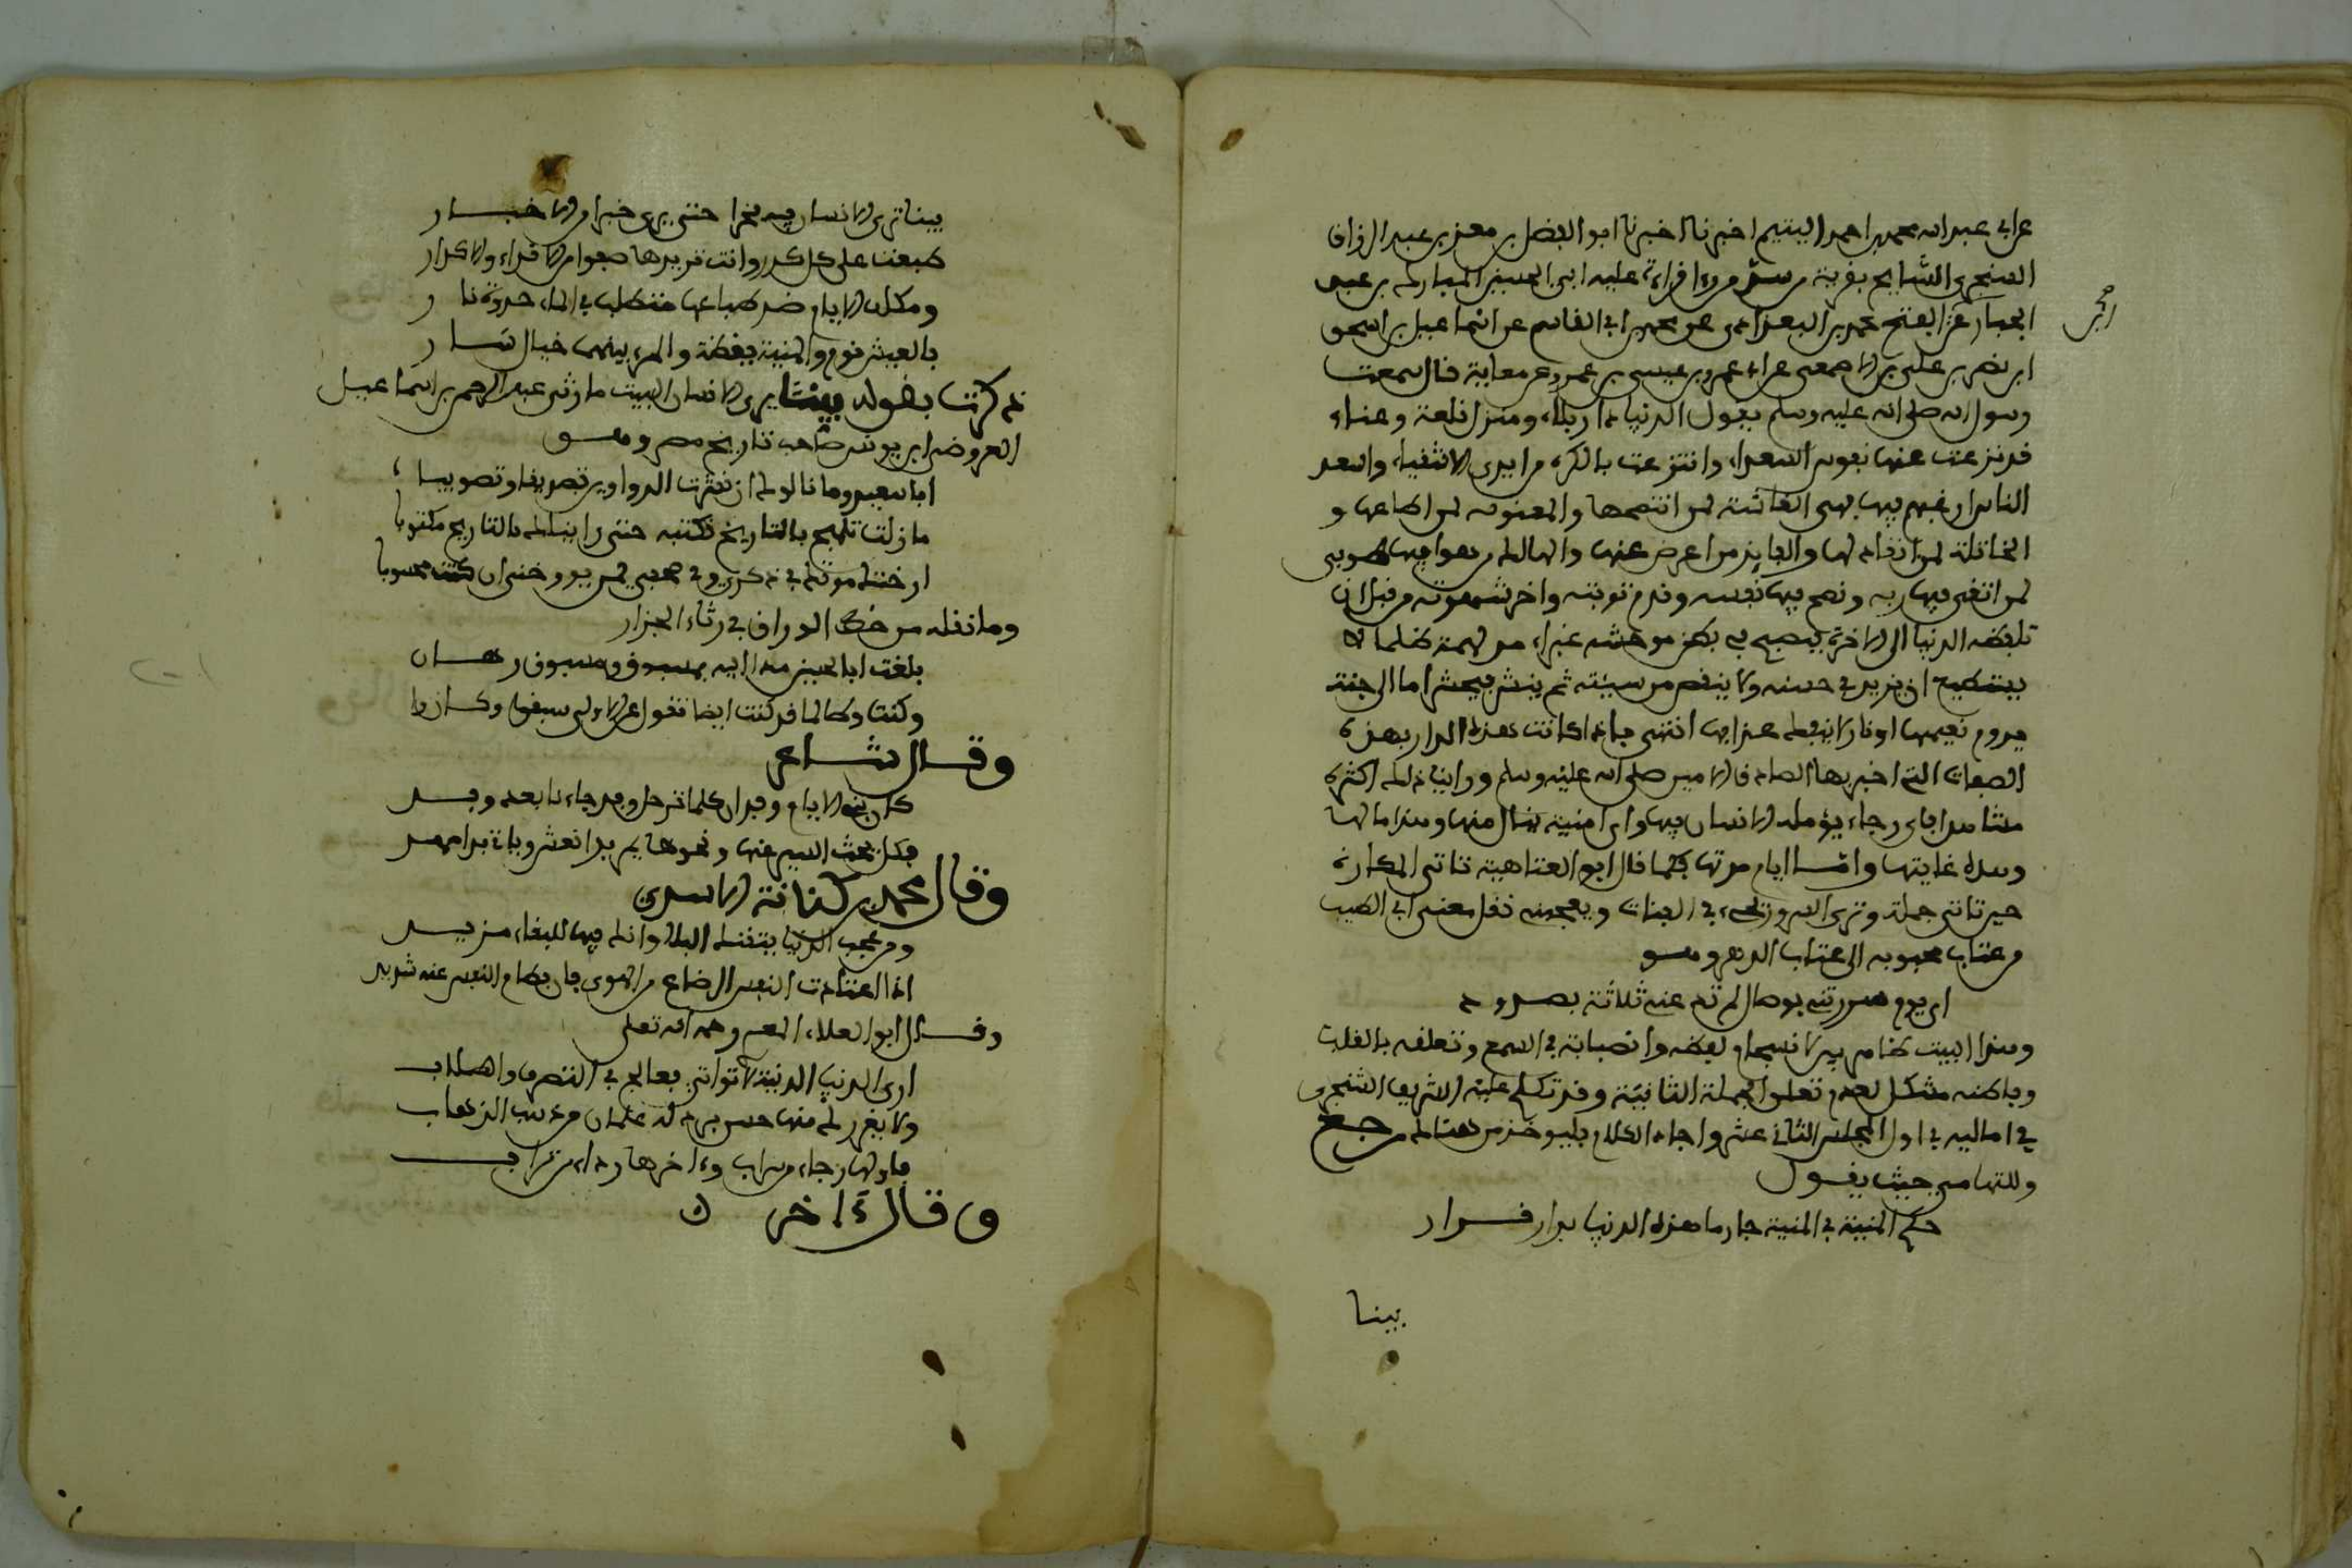 عن ابي عبد الله محمد بن احمد اليتيم اخبرنا اخبرنا ابو الفضل بن معز بن عبد الرزاق
السنجري الشايح بقرية من مرو قراءة عليه ابي الحسين المبارك بن عبد
الجبار عن ابي الفتح محمد بن البغدادي عن محمد بن ابي القاسم عن اسماعيل بن اسحق
ابن نصر بن علي بن الاصمعي عن ابي عمرو بن عيسى بن عمرو عن معاية قال سمعت
رسول الله صلى الله عليه وسلم يقول الدنيا دار بلاء ومنزل قلعة وعناء
قد نزعت عنها نفوس السعداء وانتزعت بالكره من ايدي الاشقياء واسعد
الناس ارغبهم فيها فهي الغاشة لمن انتصحها والمغوية لمن اطاعها و
الخاتلة لمن انقاد لها والفايز من اعرض عنها والهالك من هوا فيها طوبى
لمن اتقى فيها ربه ونصح فيها نفسه وقدم توبته واخر شهوته من قبل ان
تلفظه الدنيا الى الاخرة فيصبح في بطن موحشه غبراء مدلهمة ظلماء لا
يستطيع ان يزيد في حسنه ولا ينقص من سيئته ثم ينشر فيحشر اما الى جنة
يدوم نعيمها او نار لا ينفك عذابها انتهى فاذا كانت هذه الدار بهذه
الصفات التي اخبر بها الصادق الامين صلى الله عليه وسلم ورأينا ذلك اكثره
مشاهدا فاي رجاء يؤمله الانسان فيها واي امنية ينال منها وهذا مالها
وهذه غايتها وامسا ايام مرتها كما قال ابو العتاهية تاتي المكاره
حين تاتي جملة وترى السرور يجيء في الفلتات ويعجبني نقل معنى ابي الطيب
من عتاب محبوبه الى عتاب الدهر وهو
اي يوم سررتني بوصال لم ترعني ثلاثة بصدود
وهذا البيت ظاهر فيه الانسجام لفظه وانصبابه في السمع وتعلقه بالقلب
وباطنه مشكل لعدم تعلق الجملة الثانية وقد تكلم عليه الشريف الشجري
في اماليه في اول المجلس الثاني عشر واجاد الكلام فليوخذ من هناك رجع
وللتهامي حيث يقول
حكم المنية في المنية جار ما هذه الدنيا بدار قرار
بينا
بينا ترى الانسان فيه مخبرا حتى يرى خبرا من الاخبار
طبعت على كدر وانت تريدها صفوا من الاقذاء والاكدار
ومكلف الايام ضد طباعها متطلب في الماء جذوة نار
فالعيش نوم والمنية يقظة والمرء بينهما خيال سار
ذكرت بقوله بينا يرى الانسان البيت ما رثى عبد الرحمن بن اسماعيل
العروضي ابن يونس صاحب تاريخ مصر وهو
ابا سعيد وما نالوك ان نشرت الدواوين تصريفا وتصويبا
ما زلت تلهج بالتاريخ تكتبه حتى رايناك بالتاريخ مكتوبا
ارخت موتك في ذكري وفي صحفي لمن يورخني ان كنت محسوبا
ومما نقله من خط الوراق في رثاء الجزار
بلغت ابا الحسين مدا اليه مسوق ومسبوق رهان
وكنت وطالما قد كنت ايضا تقول عن الاولى سبقوا وكانوا
وقال شاعر
كان بني الايام وفدان كلما ترحل وفد جاءنا بعده وفد
فكل يحث السير عنها ونحوها يم بدا نعش وياتي بدا مهد
وقال محمد بن كنانة الاسدي
ومن عجب الدنيا يتقنك البلا وانك فيها للبقاء مزيد
اذا اعتادت النفس الرضاع من الهوى فان فطام النفس عنه شديد
وقال ابو العلاء المعري رحمه الله تعلى
ارى الدنيا الدنية لا تواتي فعالج في التصرف واهلاب
ولا يغررك منها حسن برد له علمان من ذهب الذهاب
فاولها رجاء من سراب وءاخرها رداء من تراب
وقال ءاخر